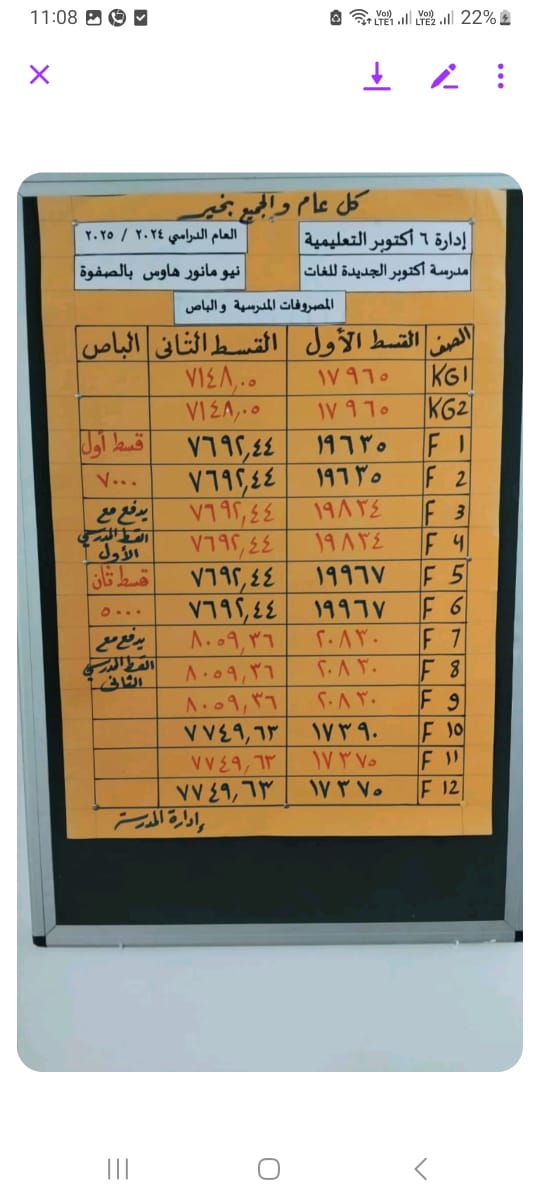 11:08 Vo) LTE1 Vo) LTE2 22%
كل عام والجميع بخير
إدارة ٦ أكتوبر التعليمية العام الدراسي ٢٠٢٤ / ٢٠٢٥
مدرسة أكتوبر الجديدة للغات نيو مانور هاوس بالصفوة
المصروفات المدرسية والباص
الصف القسط الأول القسط الثانى الباص
KG1 ١٧٩٦٥ ٧١٤٨,٠٥
KG2 ١٧٩٦٥ ٧١٤٨,٠٥
F 1 ١٩٦٣٥ ٧٦٩٢,٤٤ قسط أول
F 2 ١٩٦٣٥ ٧٦٩٢,٤٤ ٧٠٠٠
F 3 ١٩٨٣٤ ٧٦٩٢,٤٤ يدفع مع
F 4 ١٩٨٣٤ ٧٦٩٢,٤٤ القسط الدرسي الأول
F 5 ١٩٩٦٧ ٧٦٩٢,٤٤ قسط ثان
F 6 ١٩٩٦٧ ٧٦٩٢,٤٤ ٥٠٠٠
F 7 ٢٠٨٣٠ ٨٠٥٩,٣٦ يدفع مع
F 8 ٢٠٨٣٠ ٨٠٥٩,٣٦ القسط الدرسي الثانى
F 9 ٢٠٨٣٠ ٨٠٥٩,٣٦
F 10 ١٧٣٩٠ ٧٧٤٩,٦٣
F 11 ١٧٣٧٥ ٧٧٤٩,٦٣
F 12 ١٧٣٧٥ ٧٧٤٩,٦٣
إدارة المدرسة